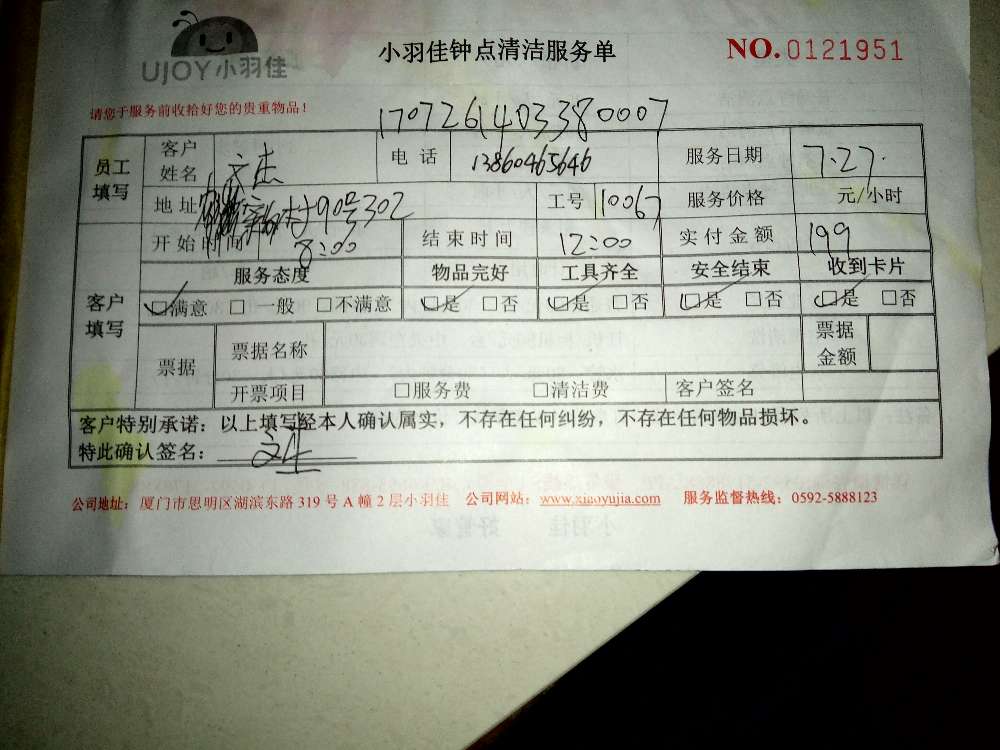 UJOY小羽佳
小羽佳钟点清洁服务单
NO.0121951
请您于服务前收拾好您的贵重物品！
1707261403380007
员工填写 客户姓名 文杰 电话 13860465646 服务日期 7.27.
地址 村90号302 工号 10067 服务价格 元/小时
客户填写 开始时间 8:00 结束时间 12:00 实付金额 199
服务态度 物品完好 工具齐全 安全结束 收到卡片
☑满意 □一般 □不满意 ☑是 □否 ☑是 □否 ☑是 □否 ☑是 □否
票据 票据名称 票据金额
开票项目 □服务费 □清洁费 客户签名
客户特别承诺：以上填写经本人确认属实，不存在任何纠纷，不存在任何物品损坏。
特此确认签名：
公司地址：厦门市思明区湖滨东路 319 号 A 幢 2 层小羽佳 公司网站：www.xiaoyujia.com 服务监督热线：0592-5888123